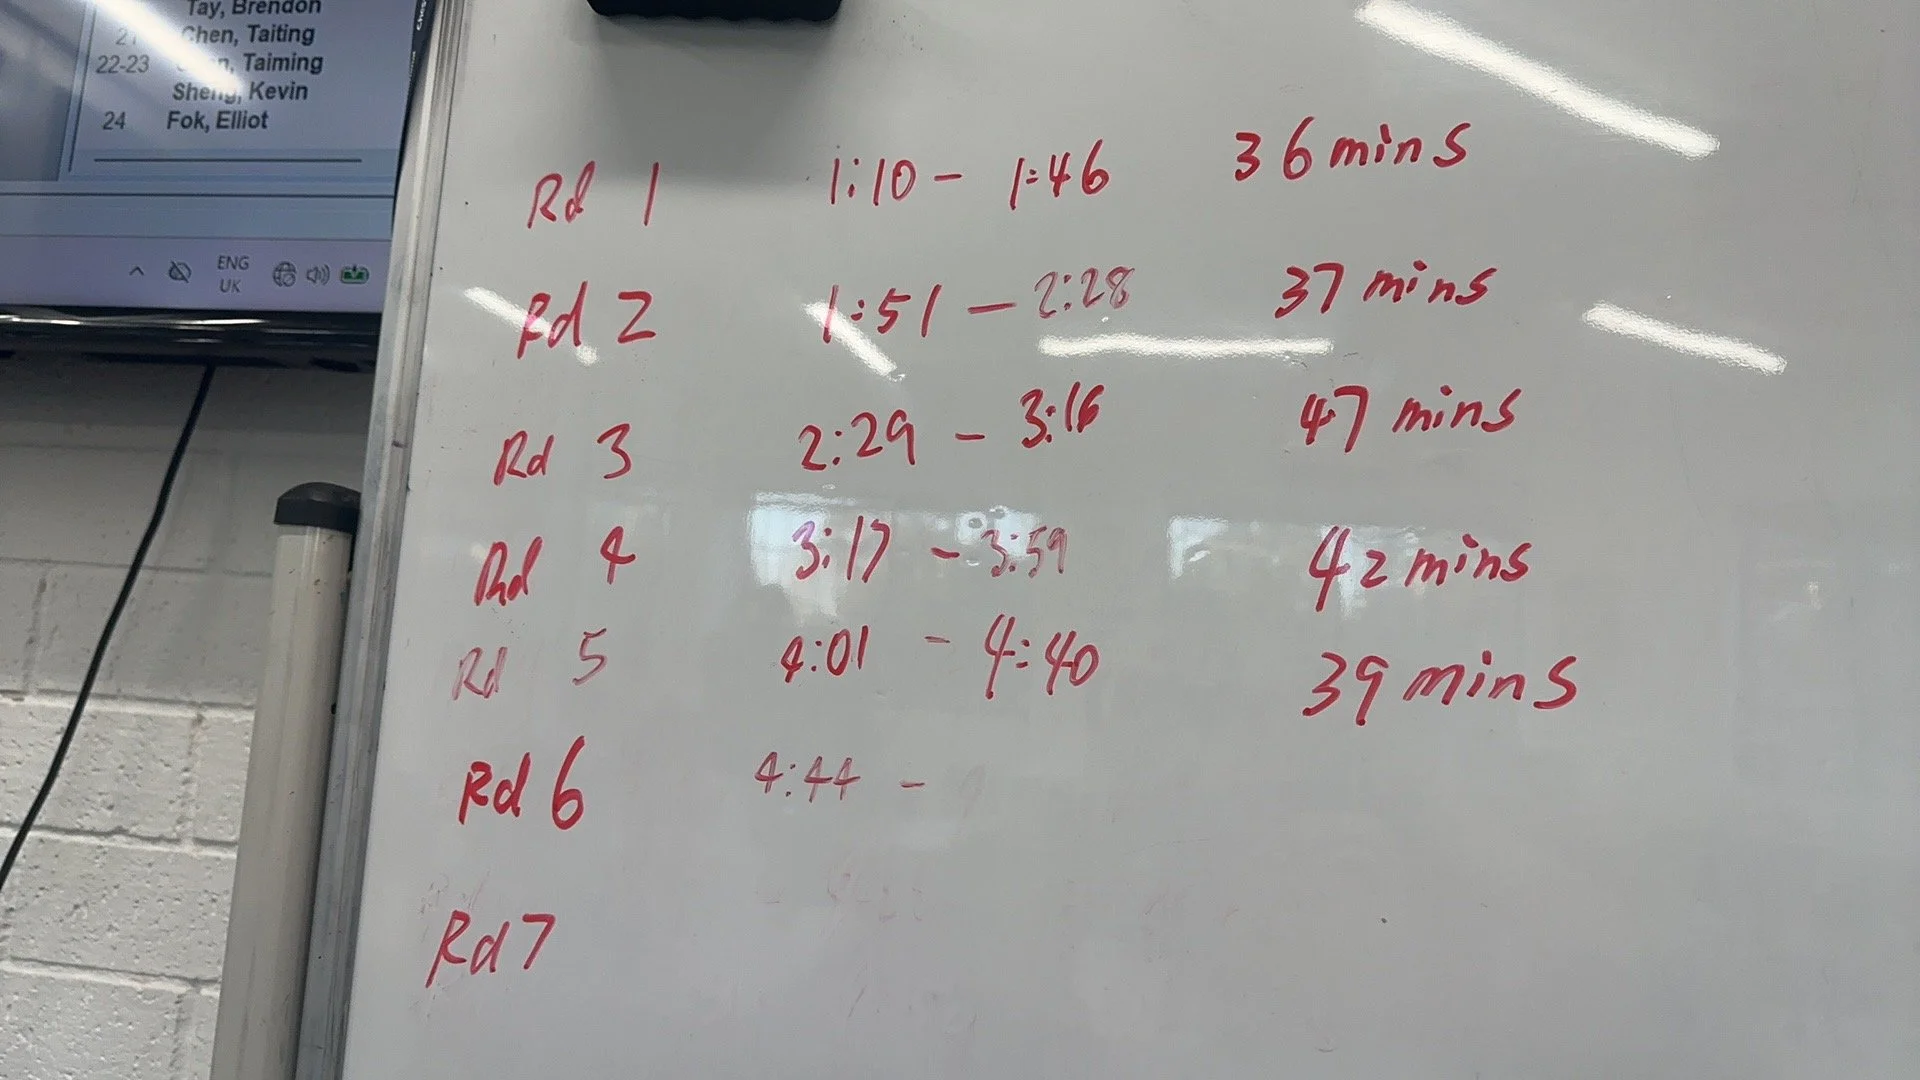 Tay, Brendon
Chen, Taiting
22-23 Taiming
Sheng, Kevin
24 Fok, Elliot
ENG
UK
Rd 1 1:10 - 1:46 36 mins
Rd 2 1:51 - 2:28 37 mins
Rd 3 2:29 - 3:16 47 mins
Rd 4 3:17 - 3:59 42 mins
Rd 5 4:01 - 4:40 39 mins
Rd 6 4:44 -
Rd 7